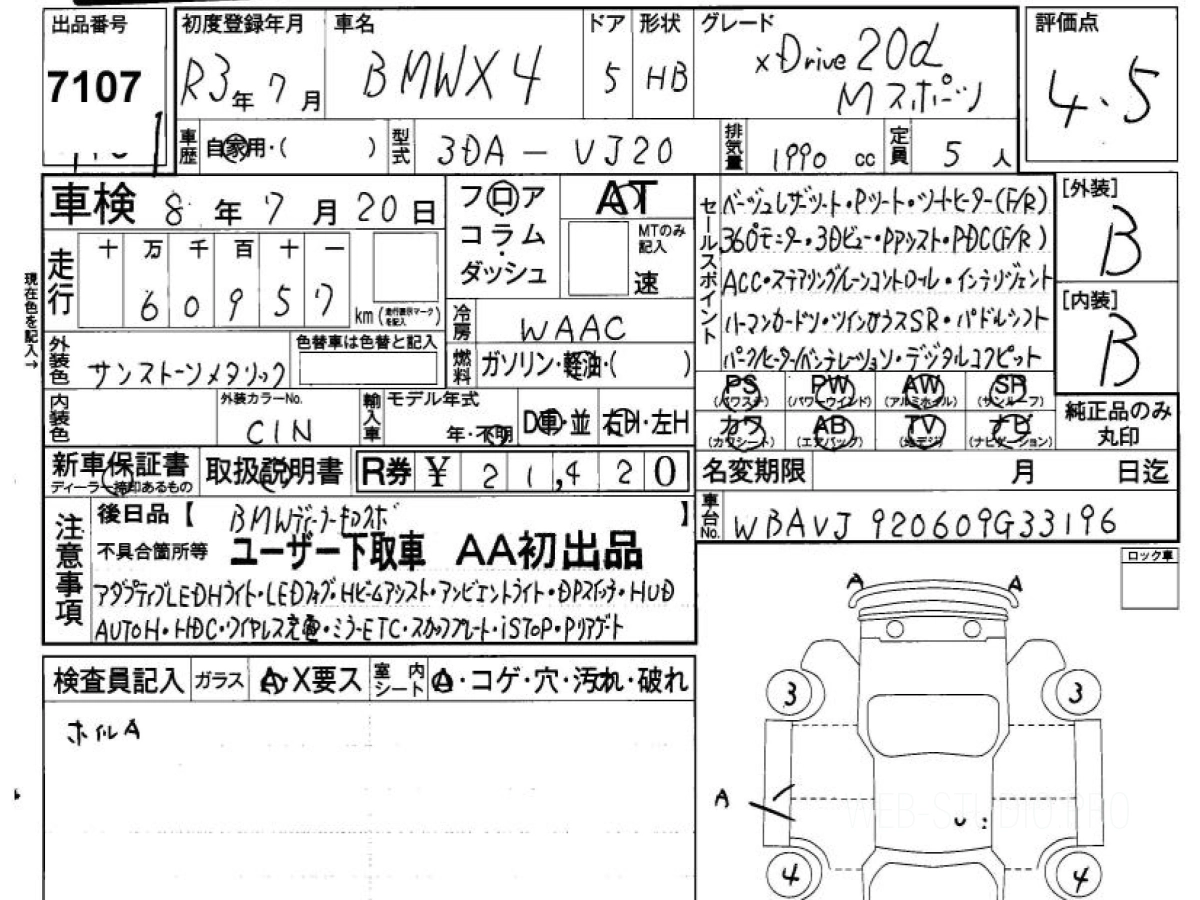 出品番号
7107
初度登録年月
R3年7月
車名
BMWX4
ドア
5
形状
HB
グレード
xDrive20d
Mスポーツ
評価点
4.5
車歴 自家用・( )
型式 3DA-VJ20
排気量 1990 cc
定員 5 人
車検 8年7月20日
フロア
コラム
ダッシュ
AT
MTのみ記入
速
現在色を記入→
走行
十万千百十一
60957
km(走行表示マークを記入)
冷房 WAAC
燃料 ガソリン・軽油・( )
外装色 サンストーンメタリック
色替車は色替と記入
内装色
外装カラーNo.
C1N
輸入車
モデル年式
年・不明
D車・並
右H・左H
セールスポイント
ベージュレザーシート・Pシート・シートヒーター(F/R)
360°モニター・3Dビュー・PPアシスト・PDC(F/R)
ACC・ステアリング/レーンコントロール・インテリジェント
ハーマンカードン・ツインガラスSR・パドルシフト
パーク/ヒーター/ベンチレーション・デジタルコクピット
PS (パワステ)
PW (パワーウインド)
AW (アルミホイル)
SR (サンルーフ)
カワ (カワシート)
AB (エアバック)
TV (地デジ)
ナビ (ナビゲーション)
[外装]
B
[内装]
B
純正品のみ
丸印
新車保証書
ディーラー捺印あるもの
取扱説明書
R券 ¥ 21,420
名変期限 月 日迄
車台No. WBAVJ920609G33196
注意事項
後日品【 BMWディーラーキロスポ 】
不具合箇所等 ユーザー下取車 AA初出品
アダプティブLEDHライト・LEDフォグ・Hビームアシスト・アンビエントライト・DPスイッチ・HUD
AUTOH・HDC・ワイヤレス充電・ミラーETC・スカッフプレート・iSTOP・Pリアゲート
ロック車
検査員記入 ガラス A・X要ス 室内シート A・コゲ・穴・汚れ・破れ
ホイルA
A
A
3
3
A
WEB-STUDIO.PRO
4
4